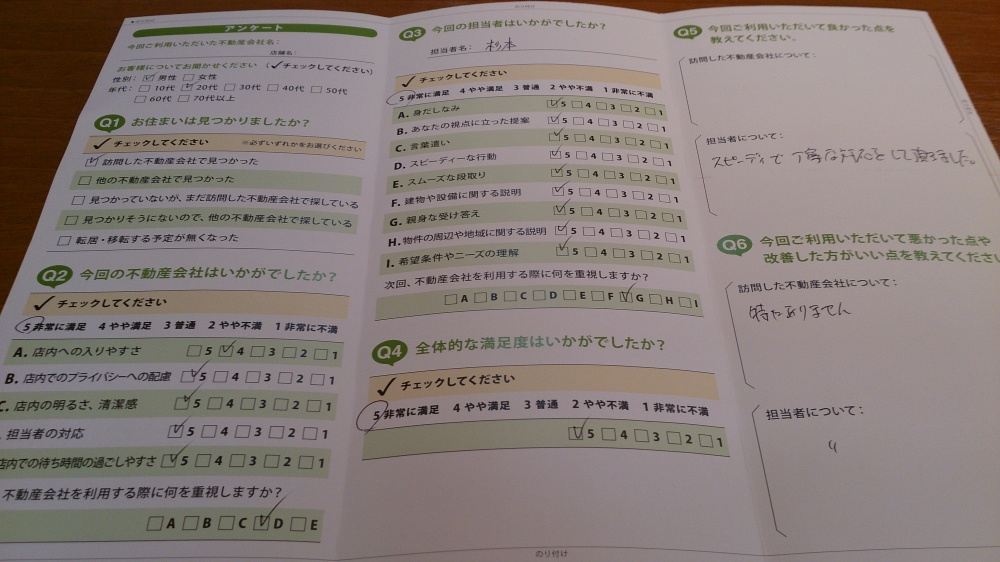 アンケート
今回ご利用いただいた不動産会社名：
店舗名：
お客様についてお聞かせください（✓チェックしてください）
性別： ☑男性 □女性
年代： □10代 ☑20代 □30代 □40代 □50代
□60代 □70代以上
Q1 お住まいは見つかりましたか？
✓チェックしてください ※必ずいずれかをお選びください
☑訪問した不動産会社で見つかった
□他の不動産会社で見つかった
□見つかっていないが、まだ訪問した不動産会社で探している
□見つかりそうにないので、他の不動産会社で探している
□転居・移転する予定が無くなった
Q2 今回の不動産会社はいかがでしたか？
✓チェックしてください
5 非常に満足 4 やや満足 3 普通 2 やや不満 1 非常に不満
A. 店内への入りやすさ □5 ☑4 □3 □2 □1
B. 店内でのプライバシーへの配慮 ☑5 □4 □3 □2 □1
C. 店内の明るさ、清潔感 ☑5 □4 □3 □2 □1
担当者の対応 ☑5 □4 □3 □2 □1
店内での待ち時間の過ごしやすさ ☑5 □4 □3 □2 □1
不動産会社を利用する際に何を重視しますか？
□A □B □C ☑D □E
Q3 今回の担当者はいかがでしたか？
担当者名： 杉本
✓チェックしてください
5 非常に満足 4 やや満足 3 普通 2 やや不満 1 非常に不満
A. 身だしなみ ☑5 □4 □3 □2 □1
B. あなたの視点に立った提案 ☑5 □4 □3 □2 □1
C. 言葉遣い ☑5 □4 □3 □2 □1
D. スピーディーな行動 ☑5 □4 □3 □2 □1
E. スムーズな段取り ☑5 □4 □3 □2 □1
F. 建物や設備に関する説明 ☑5 □4 □3 □2 □1
G. 親身な受け答え ☑5 □4 □3 □2 □1
H. 物件の周辺や地域に関する説明 ☑5 □4 □3 □2 □1
I. 希望条件やニーズの理解 ☑5 □4 □3 □2 □1
次回、不動産会社を利用する際に何を重視しますか？
□A □B □C □D □E □F ☑G □H □I
Q4 全体的な満足度はいかがでしたか？
✓チェックしてください
5 非常に満足 4 やや満足 3 普通 2 やや不満 1 非常に不満
☑5 □4 □3 □2 □1
のり付け
Q5 今回ご利用いただいて良かった点を
教えてください。
訪問した不動産会社について：
担当者について：
スピーディで丁寧な対応をして頂きました。
Q6 今回ご利用いただいて悪かった点や
改善した方がいい点を教えてください
訪問した不動産会社について：
特にありません
担当者について：
〃